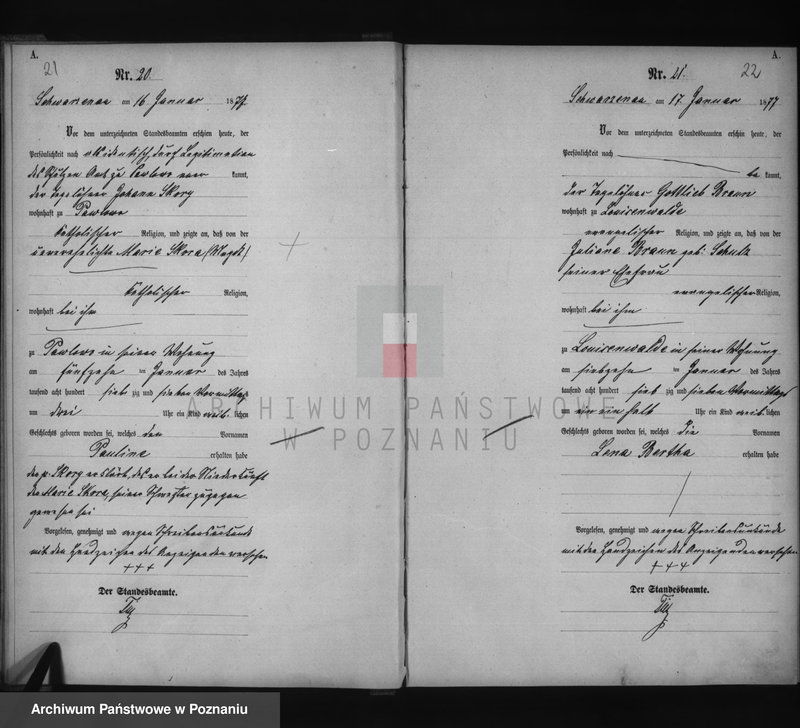 A.
21
Nr. 20.
Schwarzenau am 16 Januar 1877.
Vor dem unterzeichneten Standesbeamten erschien heute, der
Persönlichkeit nach als identisch durch Legitimation
des Schulzen Amts zu Pawlowo kannt,
der Tagelöhner Johann Skory
wohnhaft zu Pawlowo
katholischer Religion, und zeigte an, daß von der
unverehelichte Marie Skora (Magd)
katholischer Religion,
wohnhaft bei ihm
zu Pawlowo in seiner Wohnung
am fünfzehn ten Januar des Jahres
tausend acht hundert sieb zig und sieben Vormittags
um drei Uhr ein Kind weib lichen
Geschlechts geboren worden sei, welches den Vornamen
Pauline erhalten habe
der p. Skory erklärt, daß er bei der Niederkunft
der Marie Skora, seiner Schwester zugegen
gewesen sei
Vorgelesen, genehmigt und wegen Schreibensunkunde
mit den Handzeichen des Anzeigenden versehen
+++
Der Standesbeamte.
A.
22
Nr. 21.
Schwarzenau am 17 Januar 1877
Vor dem unterzeichneten Standesbeamten erschien heute, der
Persönlichkeit nach
be kannt,
der Tagelöhner Gottlieb Braun
wohnhaft zu Louisenwalde
evangelischer Religion, und zeigte an, daß von der
Juliane Braun geb. Schulz
seiner Ehefrau
evangelischer Religion,
wohnhaft bei ihm
zu Louisenwalde in seiner Wohnung
am siebzehn ten Januar des Jahres
tausend acht hundert sieb zig und sieben Vormittags
um ein ein halb Uhr ein Kind weib lichen
Geschlechts geboren worden sei, welches die Vornamen
Lena Bertha erhalten habe
Vorgelesen, genehmigt und wegen Schreibensunkunde
mit den Handzeichen des Anzeigenden versehen
+++
Der Standesbeamte.
ARCHIWUM PAŃSTWOWE
W POZNANIU
Archiwum Państwowe w Poznaniu